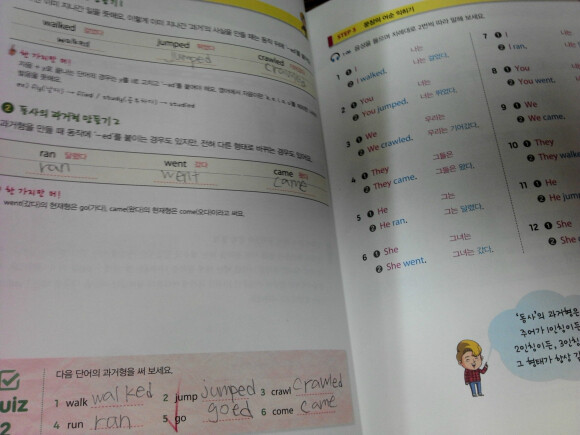 walked 걸었다 jumped crawled
walked jumped crawled
한 가지만 더!
❷ 동사의 과거형 만들기 2
과거형을 만들 때 동작에 '-ed'를 붙이는 경우도 있지만, 전혀 다른 형태로 바뀌는 경우도 있어요.
ran 달렸다 went 갔다 came 왔다
ran went came
한 가지만 더!
went(갔다)의 현재형은 go(가다), came(왔다)의 현재형은 come(오다)이라고 써요.
다음 단어의 과거형을 써 보세요.
uiz 2
1 walk walked 2 jump jumped 3 crawl crawled
4 run ran 5 go goed 6 come came
STEP 3 문장의 어순 익히기
음성을 들으며 차례대로 2번씩 따라 말해 보세요.
1 ❶ I 나는
❷ I walked. 나는 걸었다.
2 ❶ You 너는
❷ You jumped. 너는 뛰었다.
3 ❶ We 우리는
❷ We crawled. 우리는 기어갔다.
4 ❶ They 그들은
❷ They came. 그들은 왔다.
5 ❶ He 그는
❷ He ran. 그는 달렸다.
6 ❶ She 그녀는
❷ She went. 그녀는 갔다.
7 ❶ I
❷ I ran.
8 ❶ You
❷ You went.
9 ❶ We
❷ We came.
10 ❶ They
❷ They walke
11 ❶ He
❷ He jump
12 ❶ She
❷ She
'동사'의 과거형은
주어가 1인칭이든
2인칭이든, 3인칭
그 형태가 항상